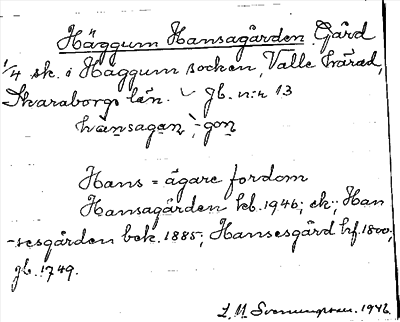 Häggum Hansagården. Gård
1/4 sk. i Häggum socken, Valle härad,
Skaraborgs län. gb. n:r 13
hànsagan, -gon
Hans = ägare fordom
Hansagården kb. 1946; ek.; Han
-sesgården bok. 1885; Hansesgård hf. 1800;
gb. 1749.
1946.